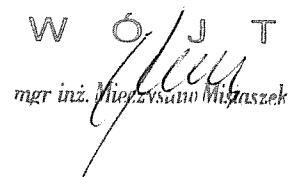 W Ó J T
mgr inż. Mieczysław Misiaszek